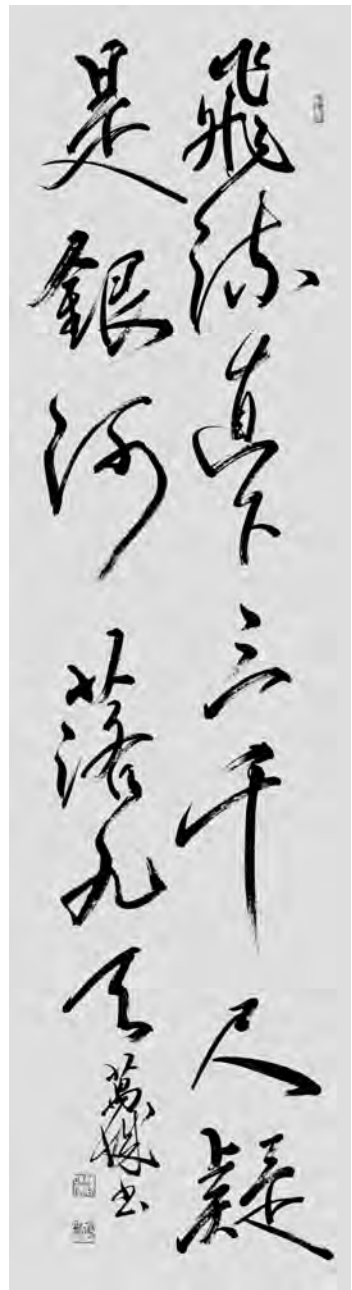 飛流直下三千尺疑
是銀河落九天
萬 書